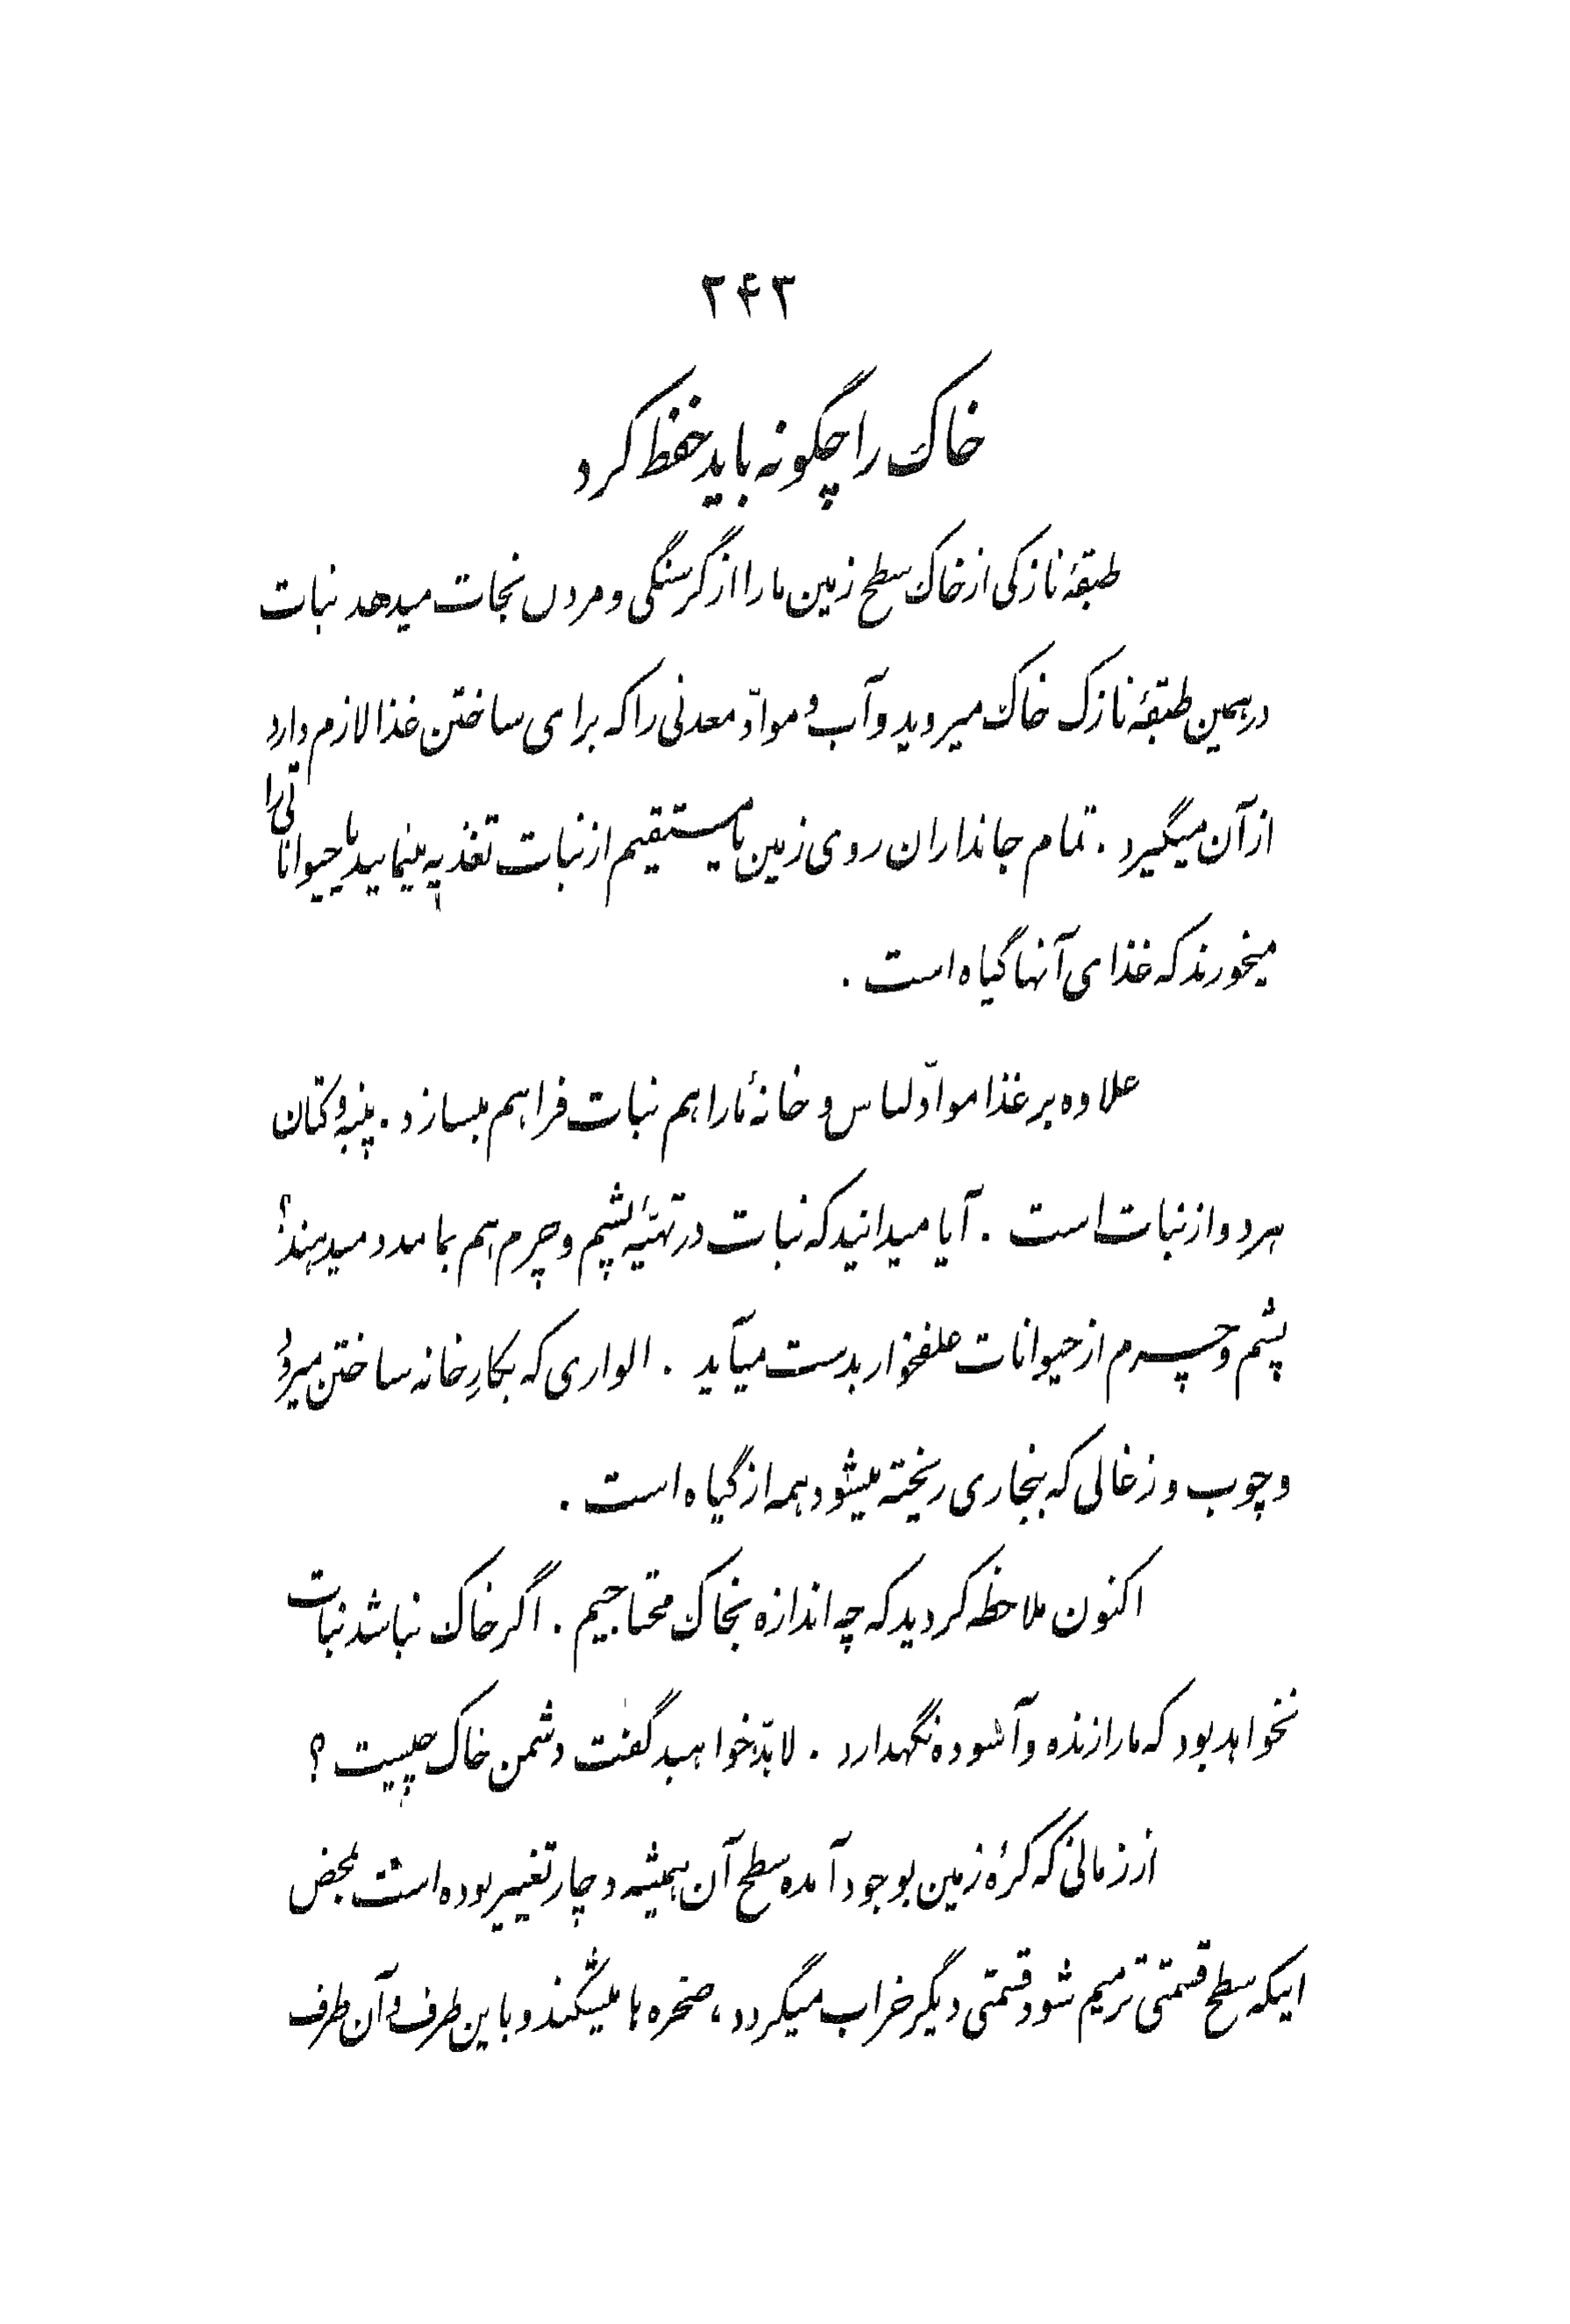 ۲۴۳
خاک را چگونه باید حفظ کرد
طبقهٔ نازکی از خاک سطح زمین ما را از گرسنگی و مردن نجات میدهد نبات
در همین طبقهٔ نازک خاک میروید و آب و موادّ معدنی را که برای ساختن غذا لازم دارد
از آن میگیرد . تمام جانداران روی زمین یا مستقیم از نبات تغذیه مینمایند یا حیواناتی را
میخورند که غذای آنها گیاه است .
علاوه بر غذا موادّ لباس و خانهٔ ما را هم نبات فراهم میسازد . پنبه و کتان
هر دو از نبات است . آیا میدانید که نبات در تهیّهٔ پشم و چرم هم بما مدد میدهند ؟
پشم و چرم از حیوانات علفخوار بدست میآید . الواری که بکارِ خانه ساختن میرود
و چوب و زغالی که ببخاری ریخته میشود همه از گیاه است .
اکنون ملاحظه کردید که چه اندازه بخاک محتاجیم . اگر خاک نباشد نبات
نخواهد بود که ما را زنده و آسوده نگهدارد . لابدّ خواهید گفت دشمن خاک چیست ؟
از زمانی که کرهٔ زمین بوجود آمده سطح آن همیشه دچار تغییر بوده است بمحض
اینکه سطح قسمتی ترمیم شود قسمتی دیگر خراب میگردد ، صخره ها میشکند و باین طرف و آن طرف